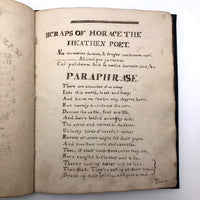 SCRAPS OF HORACE THE
HEATHEN POET.
Nos numerus sumus, & fruges consumere nati.
PARAPHRASE.
There are a number of us creep
Into this world, to eat and sleep;
And know no reason why they're born,
But merely to consume the corn,
Devour the cattle, fowl and fish,
And leave behind an empty dish;
The crows and ravens do the same,
Unlucky birds of hateful name;
Ravens or crows might fill their places,
And swallow corn and carcases.
Then, if their tomb-stone, when they die,
Ben't taught to flatter and to lie,
There's nothing better will be said,
Than that, They've eat up all their bread,
Drank up their drink, and gone to bed.